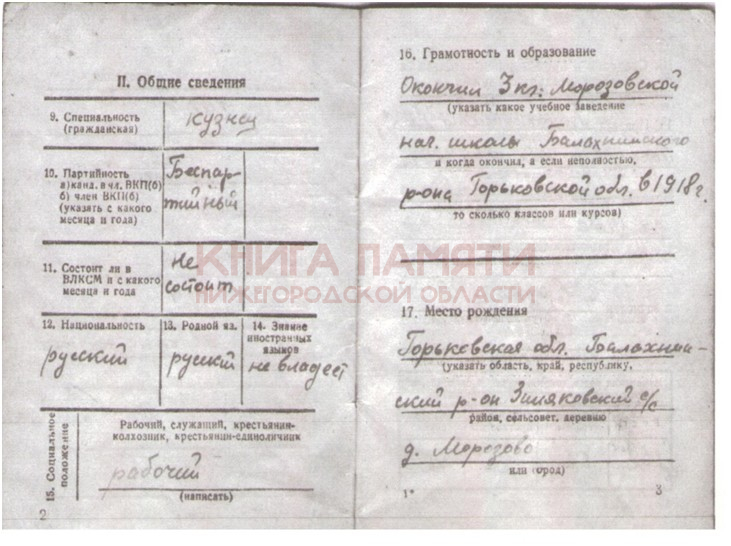 II. Общие сведения
9. Специальность
(гражданская)
кузнец
10. Партийность
а) канд. в чл. ВКП(б)
б) член ВКП(б)
(указать с какого
месяца и года)
Беспар-
тийный
11. Состоит ли в
ВЛКСМ и с какого
месяца и года
Не
состоит
12. Национальность
русский
13. Родной яз.
русский
14. Знание
иностранных
языков
не владеет
15. Социальное
положение
Рабочий, служащий, крестьянин-
колхозник, крестьянин-единоличник
рабочий
(написать)
2
16. Грамотность и образование
Окончил 3 кл. Морозовской
(указать какое учебное заведение
нач. школы Балахнинского
и когда окончил, а если неполностью,
р-она Горьковской обл. в 1918 г.
то сколько классов или курсов)
17. Место рождения
Горьковская обл. Балахнин-
(указать область, край, республику,
ский р-он Зиняковский с/с
район, сельсовет, деревню
д. Морозово
или город)
1*
3
КНИГА ПАМЯТИ
НИЖЕГОРОДСКОЙ ОБЛАСТИ